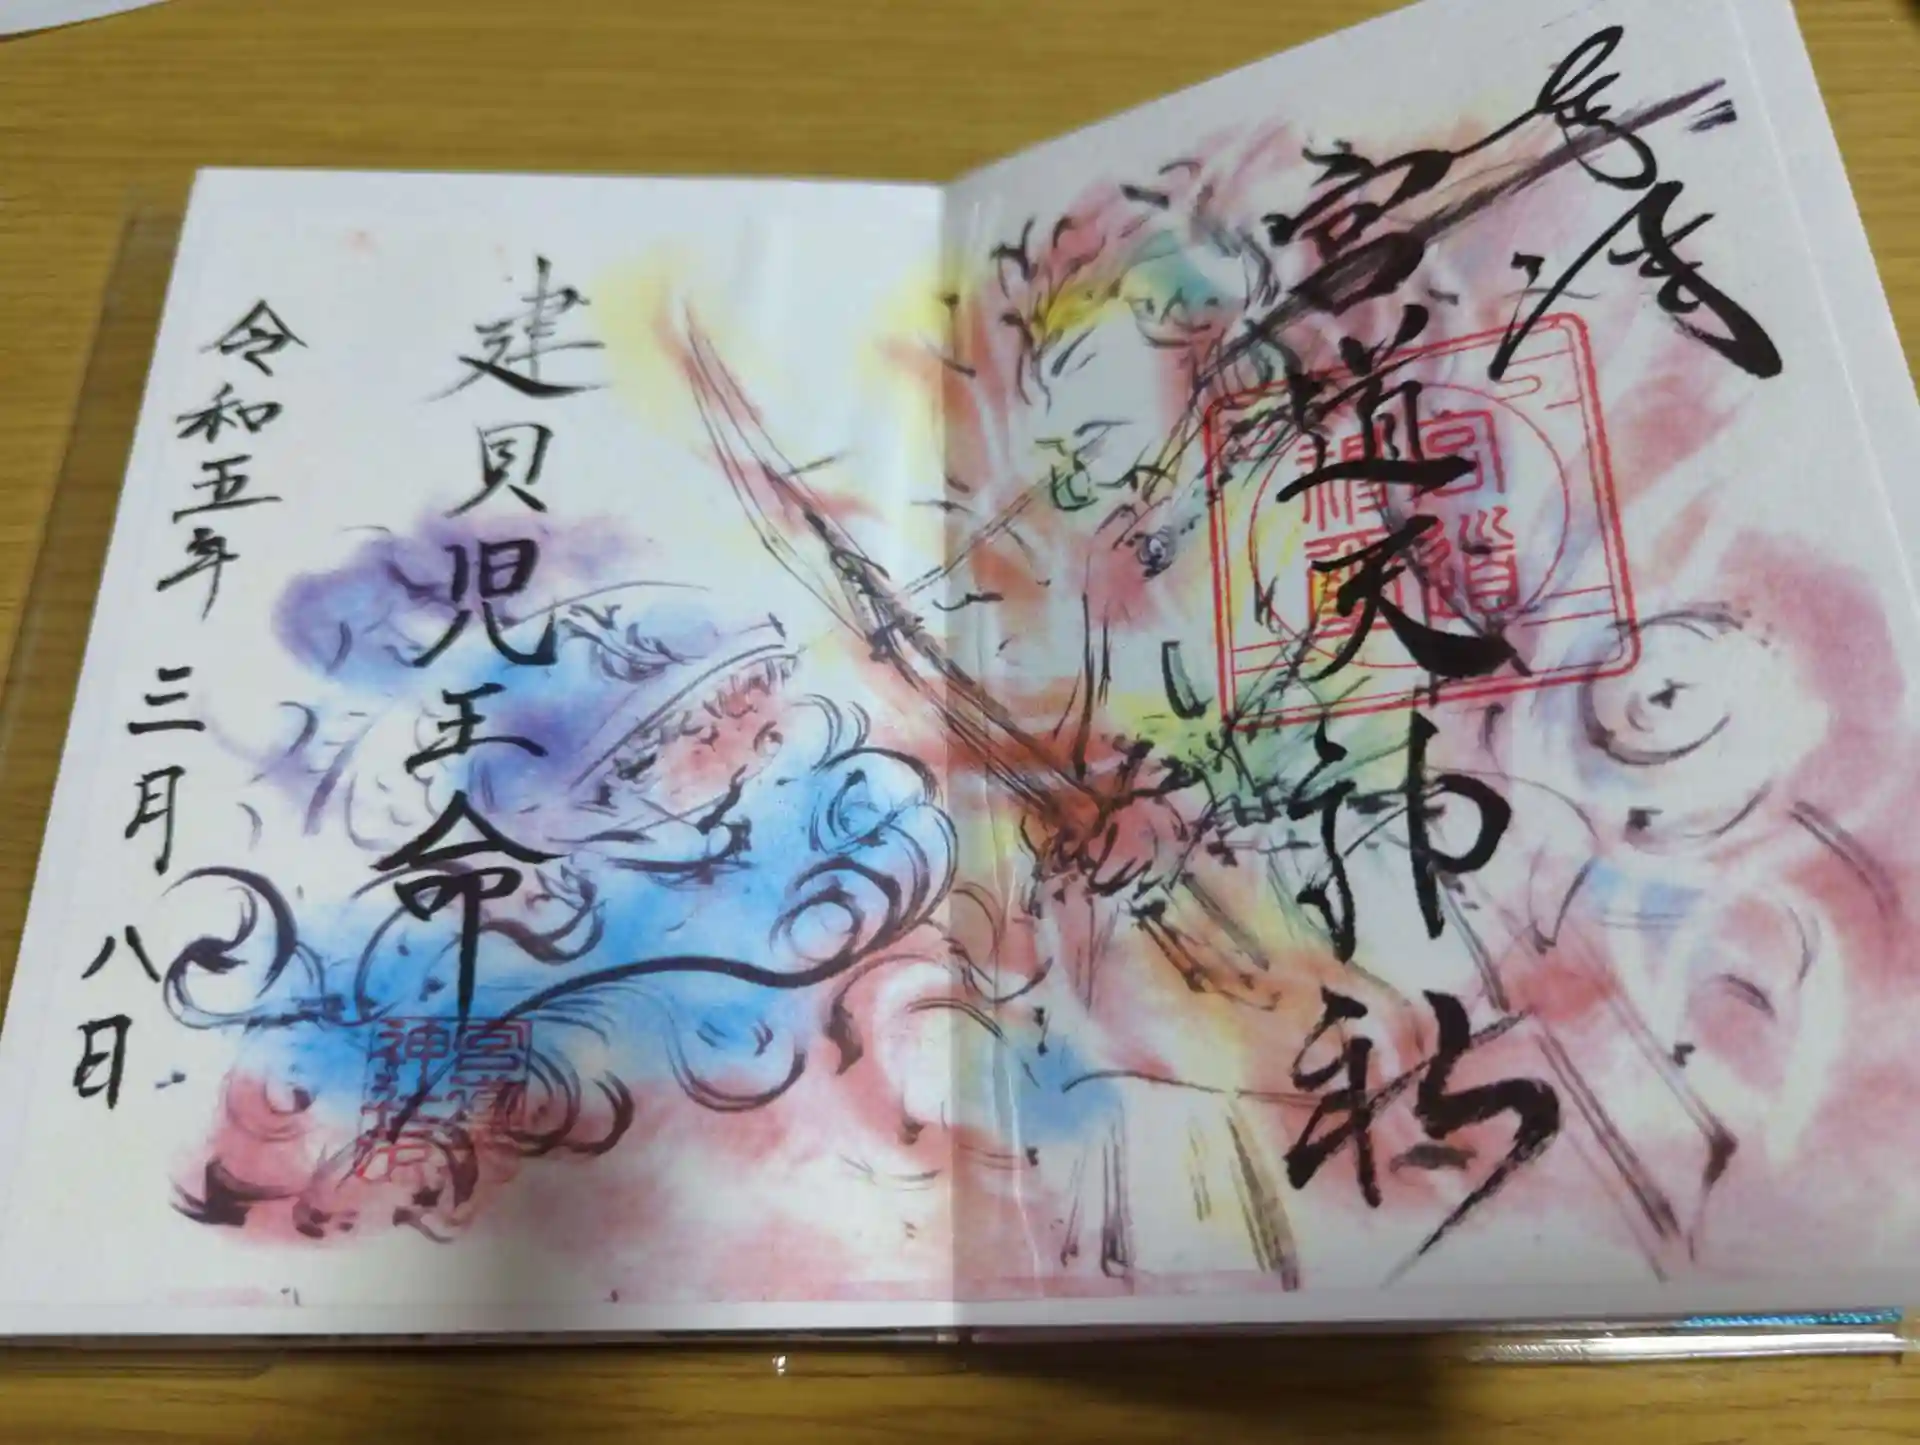 奉拝
宮道天神社
宮道
神璽
建貝児王命
宮道天
神社之印
令和五年 三月 八日